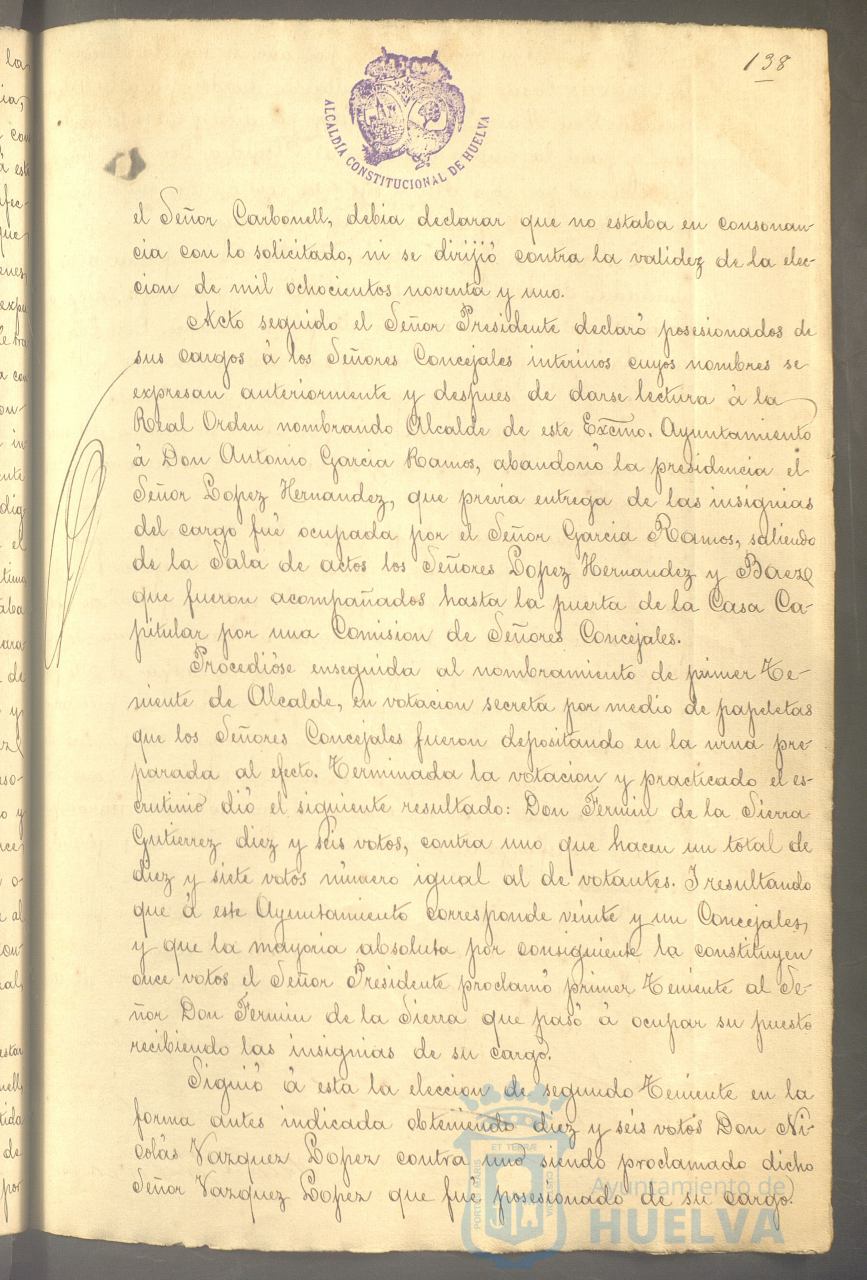 138
ALCALDÍA CONSTITUCIONAL DE HUELVA
el Señor Carbonell, debia declarar que no estaba en consonan-
cia con lo solicitado, ni se dirijió contra la validez de la elec-
cion de mil ochocientos noventa y uno.
Acto seguido el Señor Presidente declaró posesionados de
sus cargos á los Señores Concejales interinos cuyos nombres se
expresan anteriormente y despues de darse lectura á la
Real Orden nombrando Alcalde de este Excmo. Ayuntamiento
á Don Antonio Garcia Ramos, abandonó la presidencia el
Señor Lopez Hernandez, que prévia entrega de las insignias
del cargo fué ocupada por el Señor Garcia Ramos, saliendo
de la Sala de actos los Señores Lopez Hernandez y Baez
que fueron acompañados hasta la puerta de la Casa Ca-
pitular por una Comision de Señores Concejales.
Procedióse enseguida al nombramiento de primer Te-
niente de Alcalde, en votacion secreta por medio de papeletas
que los Señores Concejales fueron depositando en la urna pre-
parada al efecto. Terminada la votacion y practicado el es-
crutinio dió el siguiente resultado: Don Fermin de la Sierra
Gutierrez diez y seis votos, contra uno que hacen un total de
diez y siete votos número igual al de votantes. I resultando
que á este Ayuntamiento corresponde veinte y un Concejales,
y que la mayoria absoluta por consiguiente la constituyen
once votos el Señor Presidente proclamó primer Teniente al Se-
ñor Don Fermin de la Sierra que pasó á ocupar su puesto
recibiendo las insignias de su cargo.
Siguió á esta la eleccion de segundo Teniente en la
forma antes indicada obteniendo diez y seis votos Don Ni-
colás Vazquez Lopez contra uno siendo proclamado dicho
Señor Vazquez Lopez que fué posesionado de su cargo.
PORTUS MARIS ET TERRÆ CUSTODIA
Ayuntamiento de
HUELVA